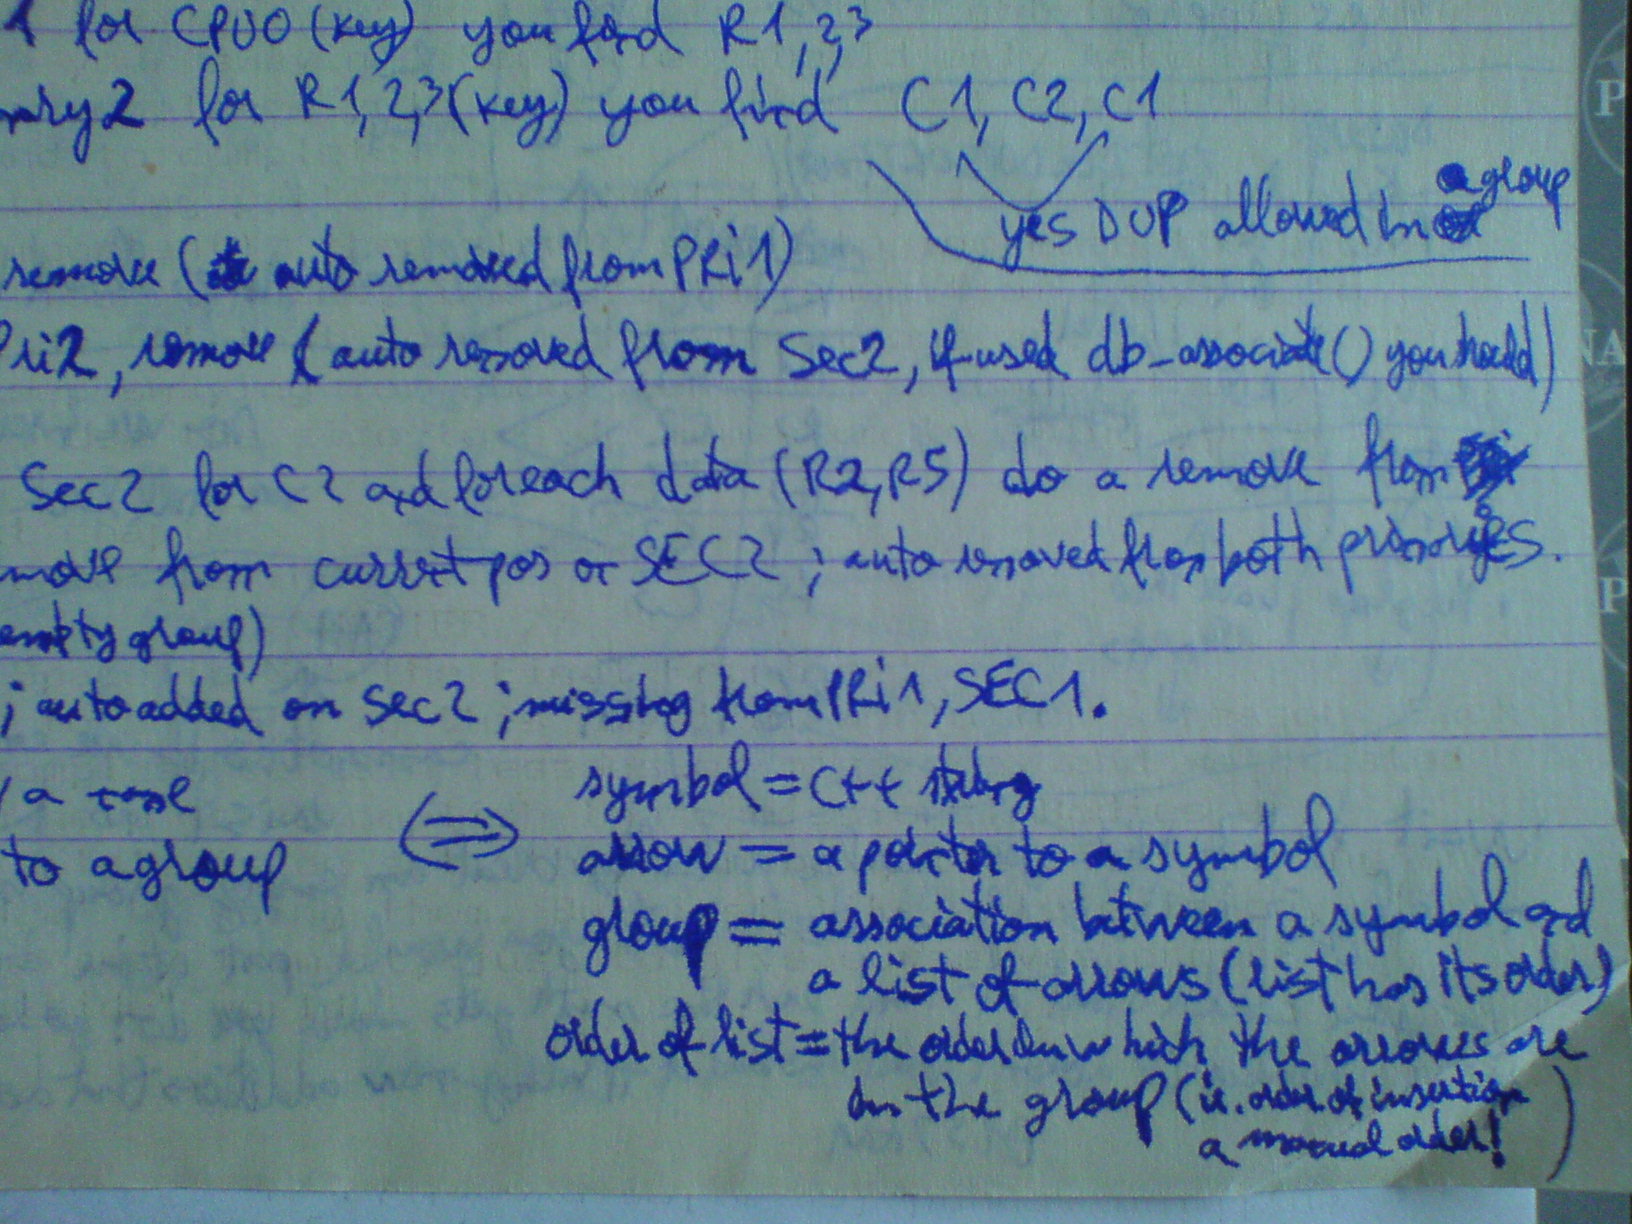 1 for CPU0 (key) you find R1,2,3
mary2 for R1,2,3 (key) you find C1, C2, C1
a group
yes DUP allowed in
remove ( auto removed from PRi1)
Pri2, remove ( auto removed from Sec2, if used db_associate() you should)
Sec2 for C2 and foreach data (R2,R5) do a remove from
move from current pos or SEC2 ; auto removed from both primaries.
empty group)
; auto added on Sec2 ; missing from PRi1, SEC1.
symbol = C++ string
/ a
arrow = a pointer to a symbol
to a group
group = association between a symbol and
a list of arrows (list has its order)
order of list = the order in which the arrows are
in the group (ie. order of insertion
a manual order! )
P
NA
P